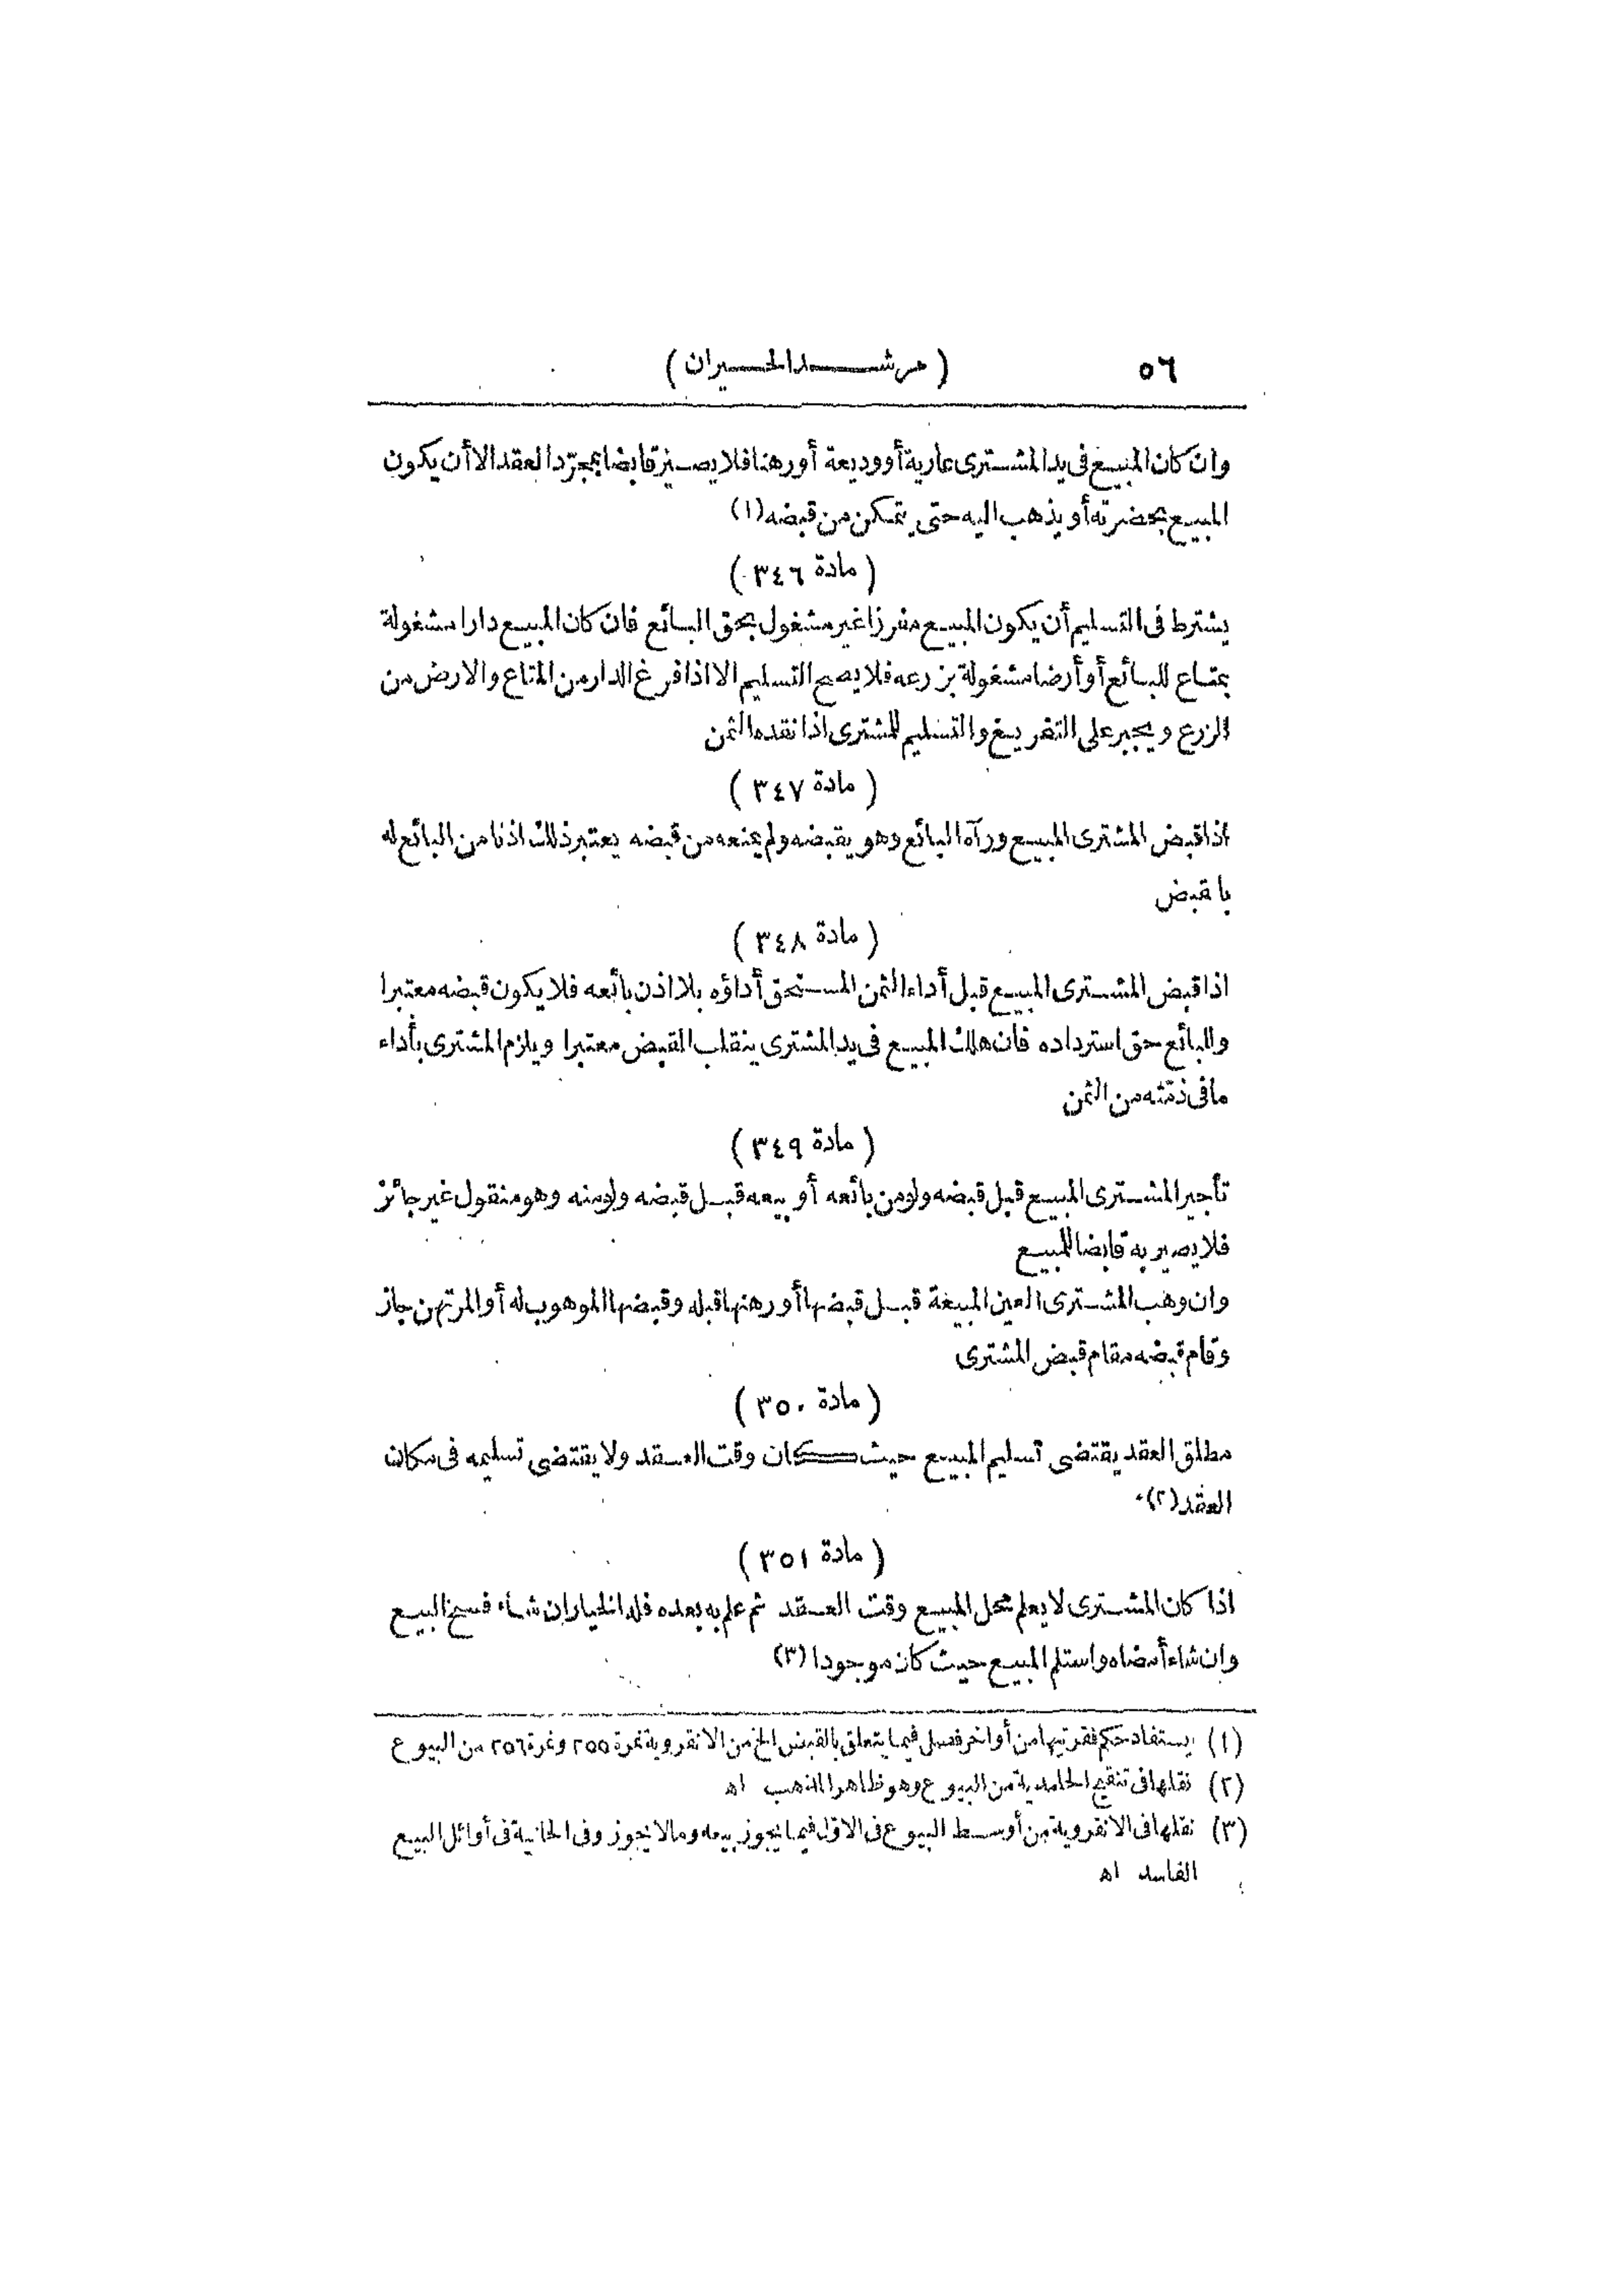 ٥٦ (مرشد الحيران)
وان كان المبيع فى يد المشترى عارية أو وديعة أو رهنا فلا يصير قابضا بمجرّد العقد الا أن يكون
المبيع بحضرته أو يذهب اليه حتى يتمكن من قبضه (١)
(مادة ٣٤٦)
يشترط فى التسليم أن يكون المبيع مفرزا غير مشغول بحق البائع فان كان المبيع دارا مشغولة
بمتاع للبائع أو أرضا مشغولة بزرعه فلا يصح التسليم الا اذا فرغ الدار من المتاع والارض من
الزرع ويجبر على التفريغ والتسليم للمشترى اذا نقده الثمن
(مادة ٣٤٧)
اذا قبض المشترى المبيع ورآه البائع وهو يقبضه ولم يمنعه من قبضه يعتبر ذلك اذنا من البائع له
با قبض
(مادة ٣٤٨)
اذا قبض المشترى المبيع قبل أداء الثمن المستحق أداؤه بلا اذن بائعه فلا يكون قبضه معتبرا
وللبائع حق استرداده فان هلك المبيع فى يد المشترى ينقلب القبض معتبرا ويلزم المشترى بأداء
ما فى ذمّته من الثمن
(مادة ٣٤٩)
تأجير المشترى المبيع قبل قبضه ولو من بائعه أو بيعه قبل قبضه ولو منه وهو منقول غير جائز
فلا يصير به قابضا للمبيع
وان وهب المشترى العين المبيعة قبل قبضها أو رهنها قبله وقبضها الموهوب له أو المرتهن جاز
وقام قبضه مقام قبض المشترى
(مادة ٣٥٠)
مطلق العقد يقتضى تسليم المبيع حيث كان وقت العقد ولا يقتضى تسليمه فى مكان
العقد (٢)
(مادة ٣٥١)
اذا كان المشترى لا يعلم محل المبيع وقت العقد ثم علم به بعده فله الخيار ان شاء فسخ البيع
وان شاء أمضاه واستلم المبيع حيث كان موجودا (٣)
(١) يستفاد حكم فقرتيها من أواخر فصل فيما يتعلق بالقبض الخ من الانقروية نمرة ٢٥٥ ونمرة ٢٥٦ من البيوع
(٢) نقلها فى تنقيح الحامدية من البيوع وهو ظاهر المذهب اه
(٣) نقلها فى الانقروية من أوسط البيوع فى الاوّل فيما يجوز بيعه وما لا يجوز وفى الخانية فى أوائل البيع
الفاسد اه